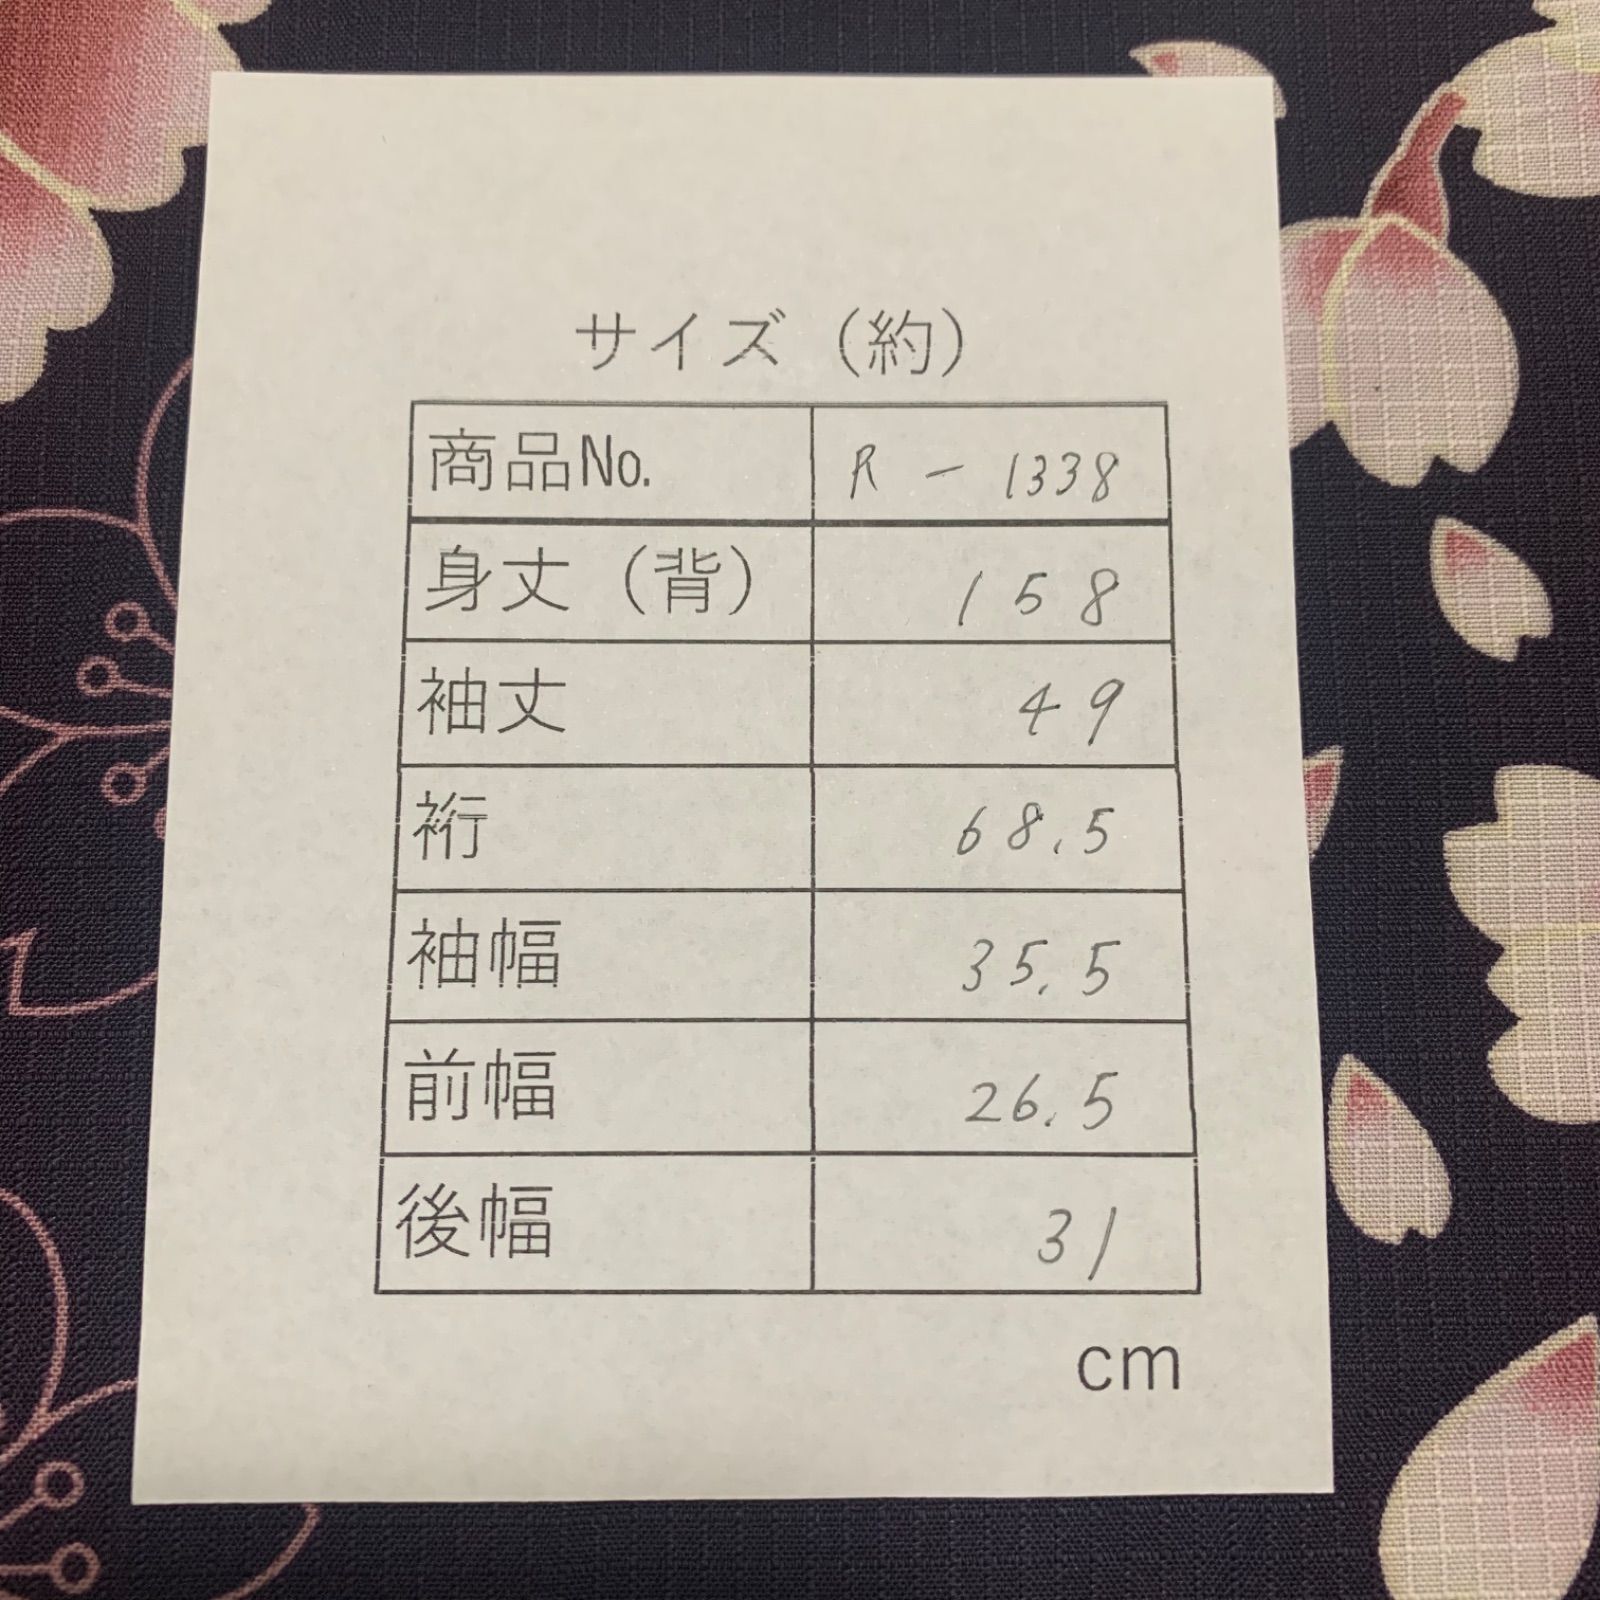 サイズ（約）
商品No. R - 1338
身丈（背） 158
袖丈 49
裄 68.5
袖幅 35.5
前幅 26.5
後幅 31
cm